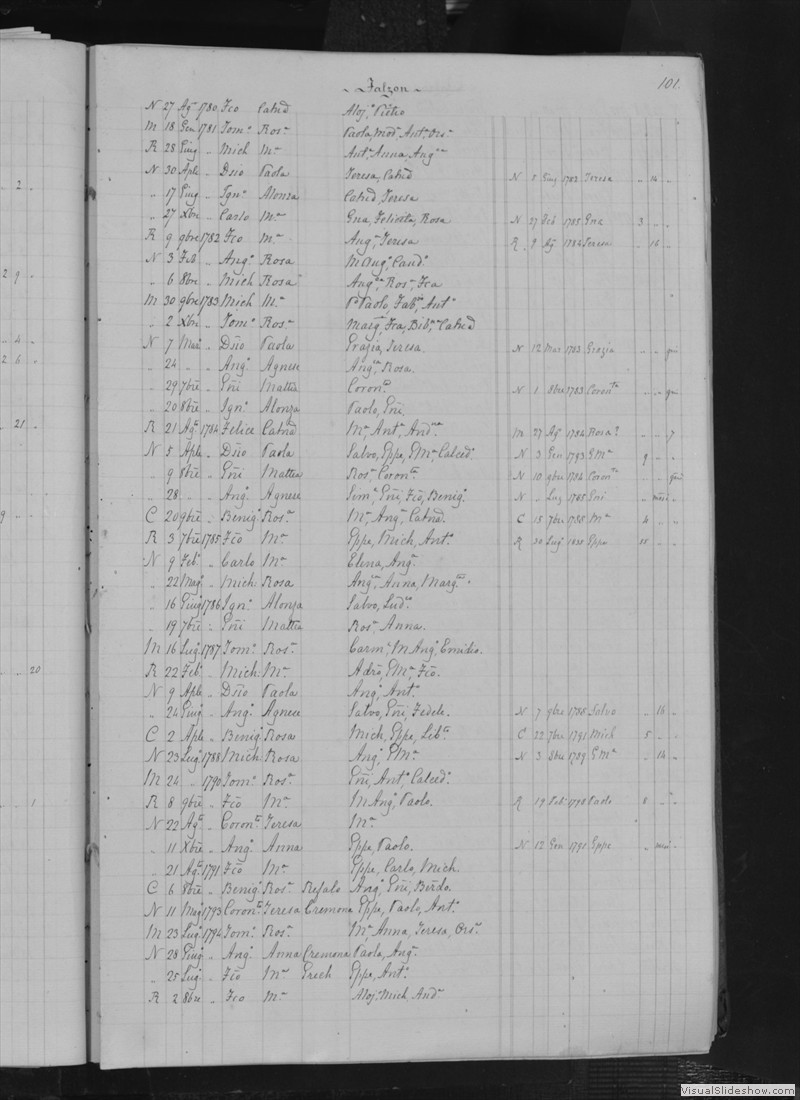 Falzon
101.
N 27 Agº 1780 Fco Catnd Aloj, Pietro
M 18 Gen 1781 Tomº Rosª Paola, Modª, Antª, Orsª
R 28 Giug " Mich Mª Antª Anna, Angª
N 30 Aple " Dsio Paola Teresa, Catnd N 5 Giug 1782 Teresa " 14 "
" 17 Giug " Ignº Alonza Catnd, Teresa
" 27 Xbre " Carlo Mª Gna, Felicita, Rosa N 27 Feb 1785 Gna 3 " "
R 9 9bre 1782 Fco Mª Angª, Teresa R 9 Agº 1784 Teresa " 16 "
N 3 Feb " Angº Rosa M Angª, Candª
" 6 8bre " Mich Rosa Angª, Rosª, Fca
M 30 9bre 1783 Mich Mª P Paolo, Fabª, Antº
" 2 Xbre " Tomº Rosª Margª, Fca, Bibª, Catnd
N 7 Marº " Dsio Paola Grazia, Teresa N 12 Mar 1783 Grazia " " gni
" 24 " " Angº Agnese Angª, Rosa.
" 29 7bre " Gñi Mattea Coronª N 1 8bre 1783 Coronta " " gni
" 20 8bre " Ignº Alonza Paolo, Gñi
R 21 Agº 1784 Felice Catnd Mª, Antª, Andª M 27 Agº 1784 Rosa? " " 7
N 5 Aple " Dsio Paola Salvo, Gppe, GMª, Calcedº N 3 Gen 1793 GMª 9 " "
" 9 8bre " Gñi Mattea Rosª, Coronta N 10 9bre 1784 Coronta " " gni
" 28 " " Angº Agnese Simª, Gñi, Fco, Benigº N " Lug 1785 Gni " mesi "
C 20 9bre " Benigº Rosª Mª, Angª, Catnd. C 15 7bre 1788 Mª 4 " "
R 3 7bre 1785 Fco Mª Gppe, Mich, Antº R 30 Lug 1838 Gppe
N 9 Feb. " Carlo Mª Elena, Angª
" 22 Magº " Mich Rosa Angª, Anna, Margta
" 16 Giug 1786 Ignº Alonza Salvo, Ludª
" 19 7bre " Gñi Mattea Rosª, Anna.
M 16 Lugº 1787 Tomº Rosª Carmª, M Angª, Emidio.
R 22 Feb. " Mich Mª Adrº, GMª, Fco.
N 9 Aple " Dsio Paola Angº, Antº
" 24 Giug " Angº Agnese Salvo, Gñi, Fedele. N 7 9bre 1788 Salvo " 16 "
C 2 Aple " Benig Rosa Mich, Gppe, Libª C 22 7bre 1791 Mich 5 " "
N 23 Lugº 1788 Mich Rosa Angº, GMª N 3 8bre 1789 GMª " 14 "
M 24 " 1790 Tomº Rosª Gñi, Antº, Calcedº
R 8 9bre " Fco Mª M Angº, Paolo. R 19 Feb 1798 Paolo 8 " "
N 22 Agº " Coronto Teresa Mª
" 11 Xbre " Angº Anna Gppe, Paolo. N 12 Gen 1791 Gppe " mese "
" 21 Agº 1791 Fco Mª Gppe, Carlo, Mich.
C 6 8bre " Benigº Rosª Refalo Angº, Gñi, Birdo.
N 11 Magº 1793 Coronto Teresa Cremona Gppe, Paolo, Antº
M 23 Lugº 1794 Tomº Rosª Mª, Anna, Teresa, Orsª
N 28 Giug " Angº Anna Cremona Paola, Angª
" 25 Lugº " Fco Mª Grech Gppe, Antº
R 2 8bre " Fco Mª Aloj, Mich, Andª
2
2 9
4
2 6
21
9
20
1
VisualSlideshow.com